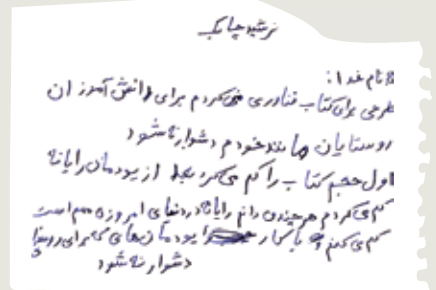 به نام خدا:
طرحی برای کتاب فناوری می‌کردم برای دانش آموزان
روستایان مانند خودم دشوار نشود
اول حجم کتاب را کم می‌کرد بعد از پودمان رایانه
کم می‌کردم هرچند می دانم رایانه در دنیای امروزه مهم است
کم می کنم و با کار پودمان‌های که برای روستا
دشوار نشود